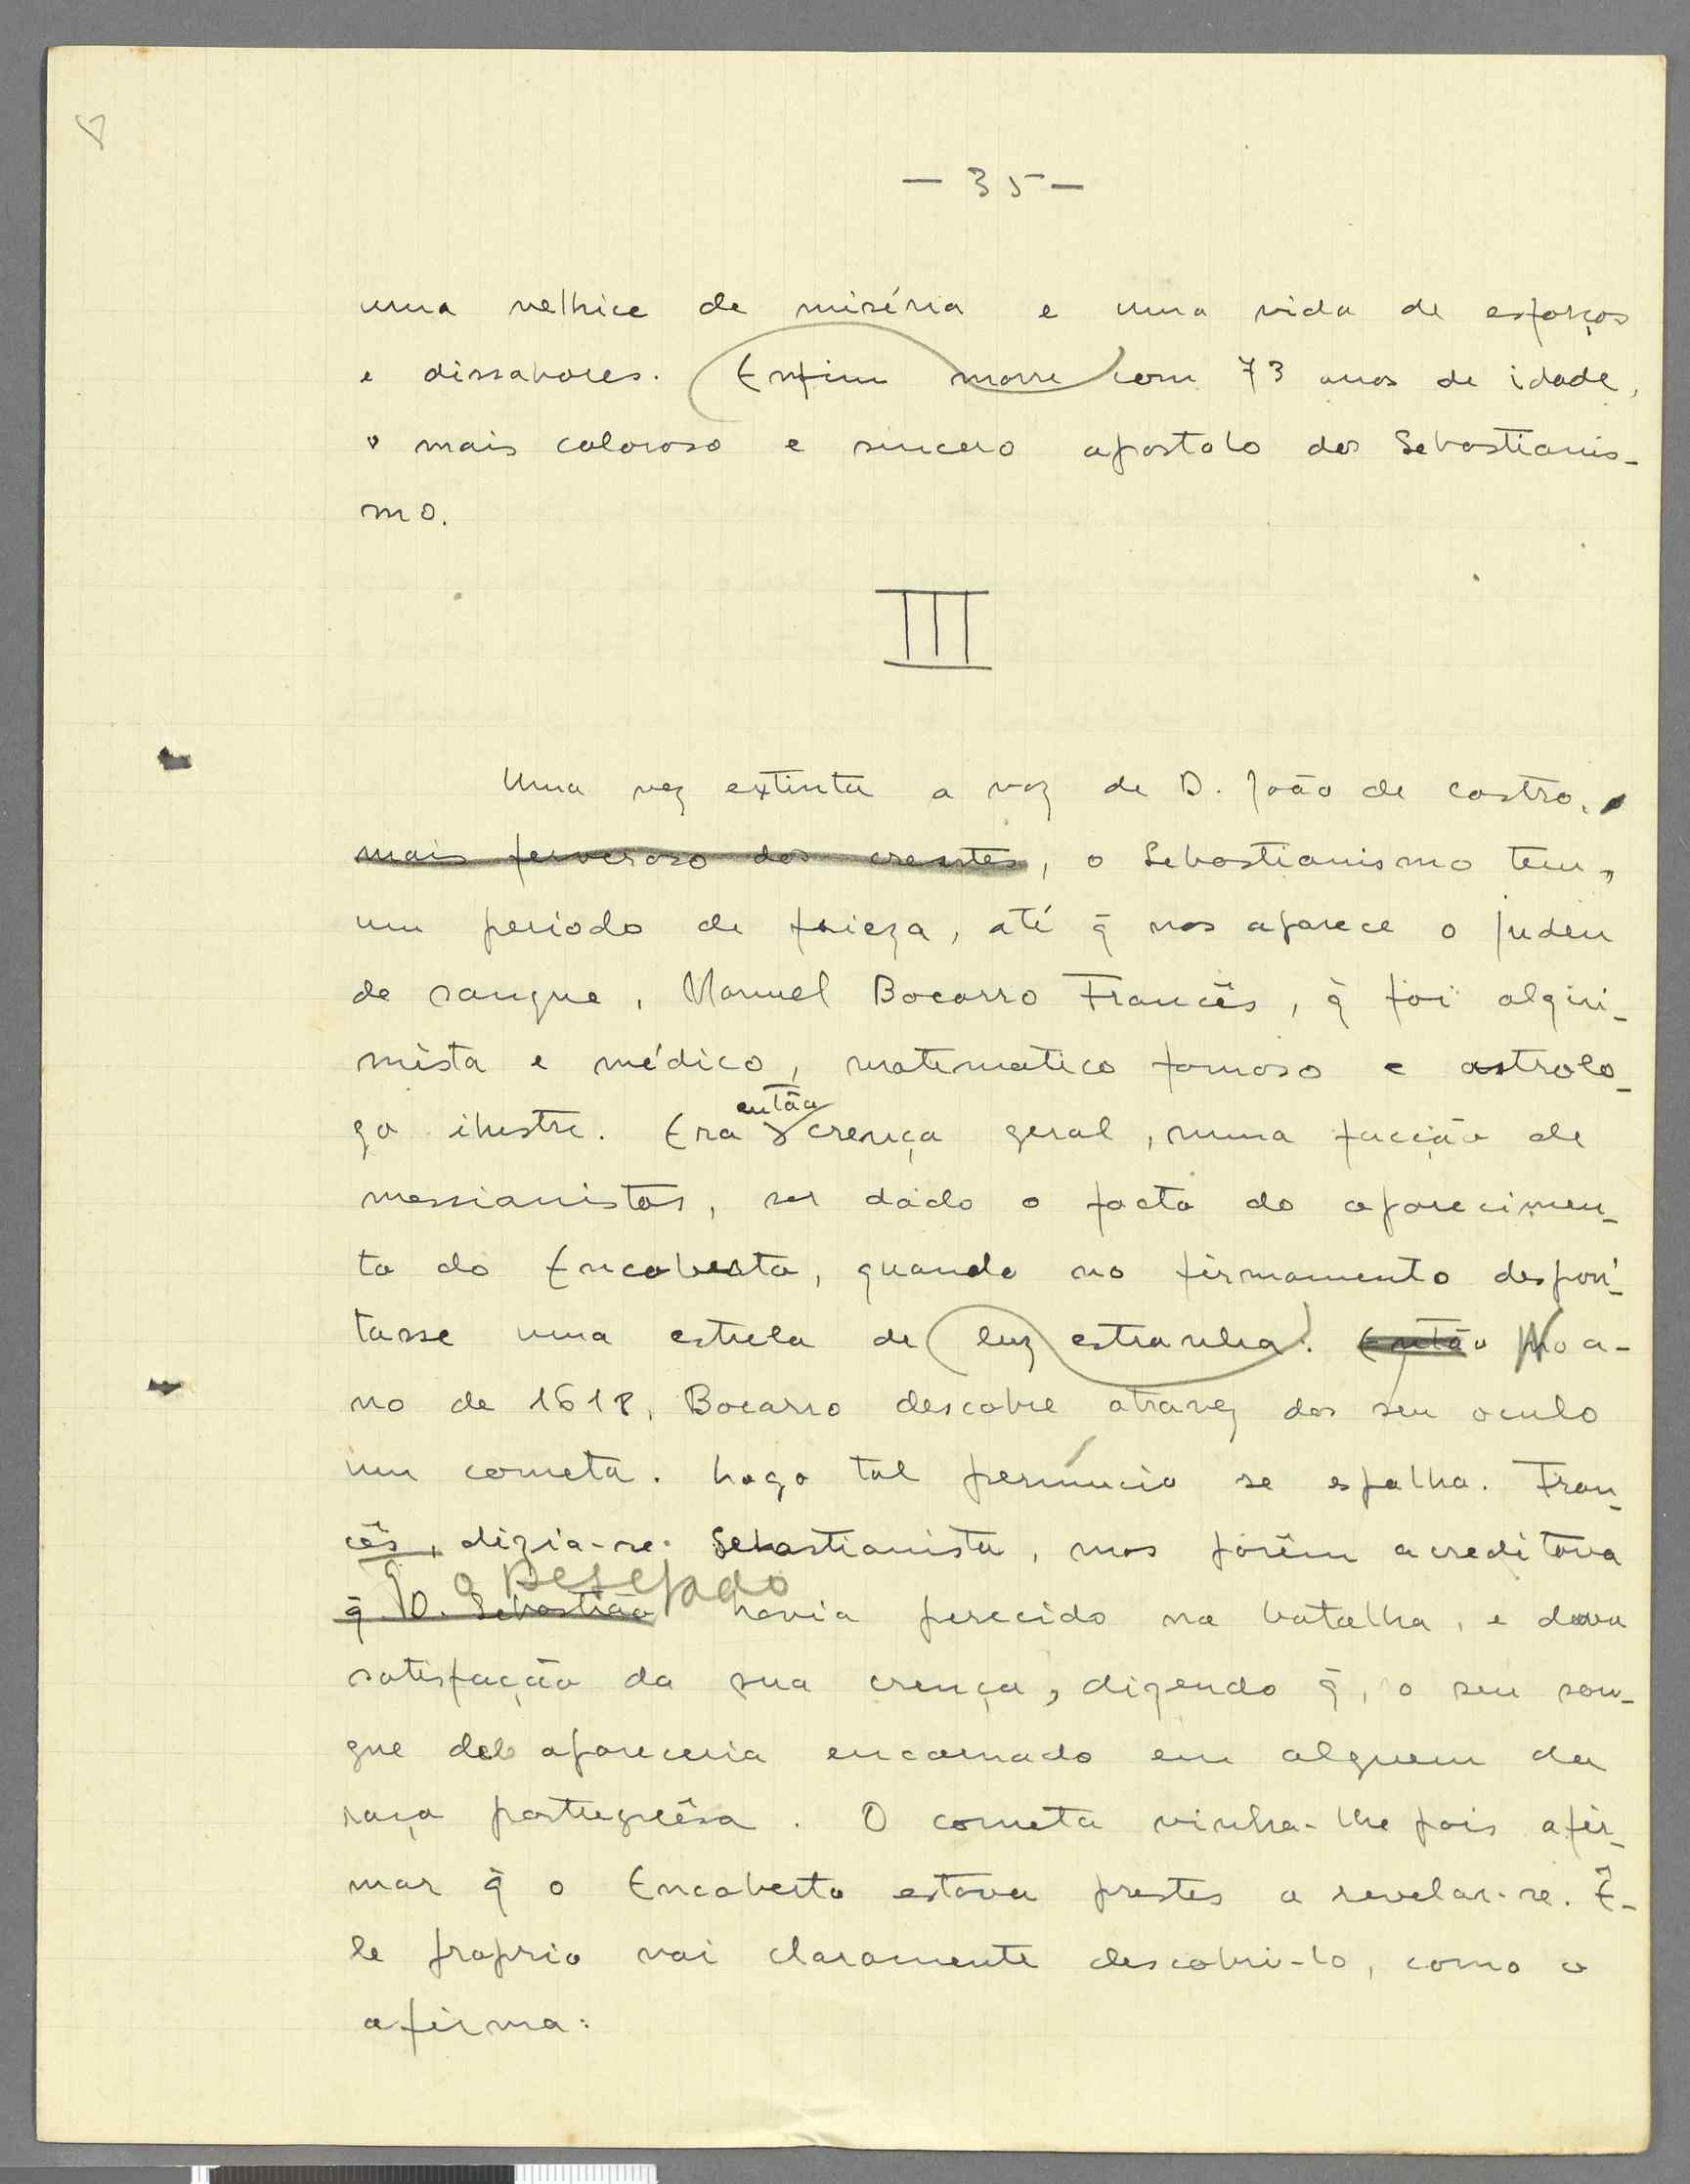 - 35 -
uma velhice de miséria e uma vida de esforços
e dissabores. Enfim morre com 73 anos de idade,
o mais caloroso e sincero apostolo do Sebastianis-
mo.
III
Uma vez extinta a voz de D. João de Castro,
mais fervoroso dos crentes, o Sebastianismo tem,
um periodo de frieza, até q̃ nos aparece o judeu
de sangue, Manuel Bocarro Francês, q̃ foi alqui-
mista e médico, matematico famoso e astrolo-
então
go ilustre. Era crença geral, numa facção de
messianistas, ser dado o facto do aparecimen-
to do Encoberto, quando no firmamento despon-
tasse uma estrela de luz estranha. Então No a-
no de 1618, Bocarro descobre atravez do seu oculo
um cometa. Logo tal prenúncio se espalha. Fran-
cês, dizia-se Sebastianista, mas porêm acreditava
o Desejado
q̃ D. Sebastião havia perecido na batalha, e dava
satisfação da sua crença, dizendo q̃, o seu san-
gue apareceria encarnado em alguem da
raça portuguêsa. O cometa vinha-lhe pois afir-
mar q̃ o Encoberto estava prestes a revelar-se. Ê-
le proprio vai claramente descobri-lo, como o
afirma: